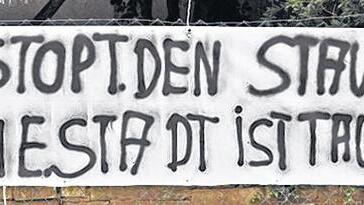 STOPT.DEN STAU
ESTADT IST